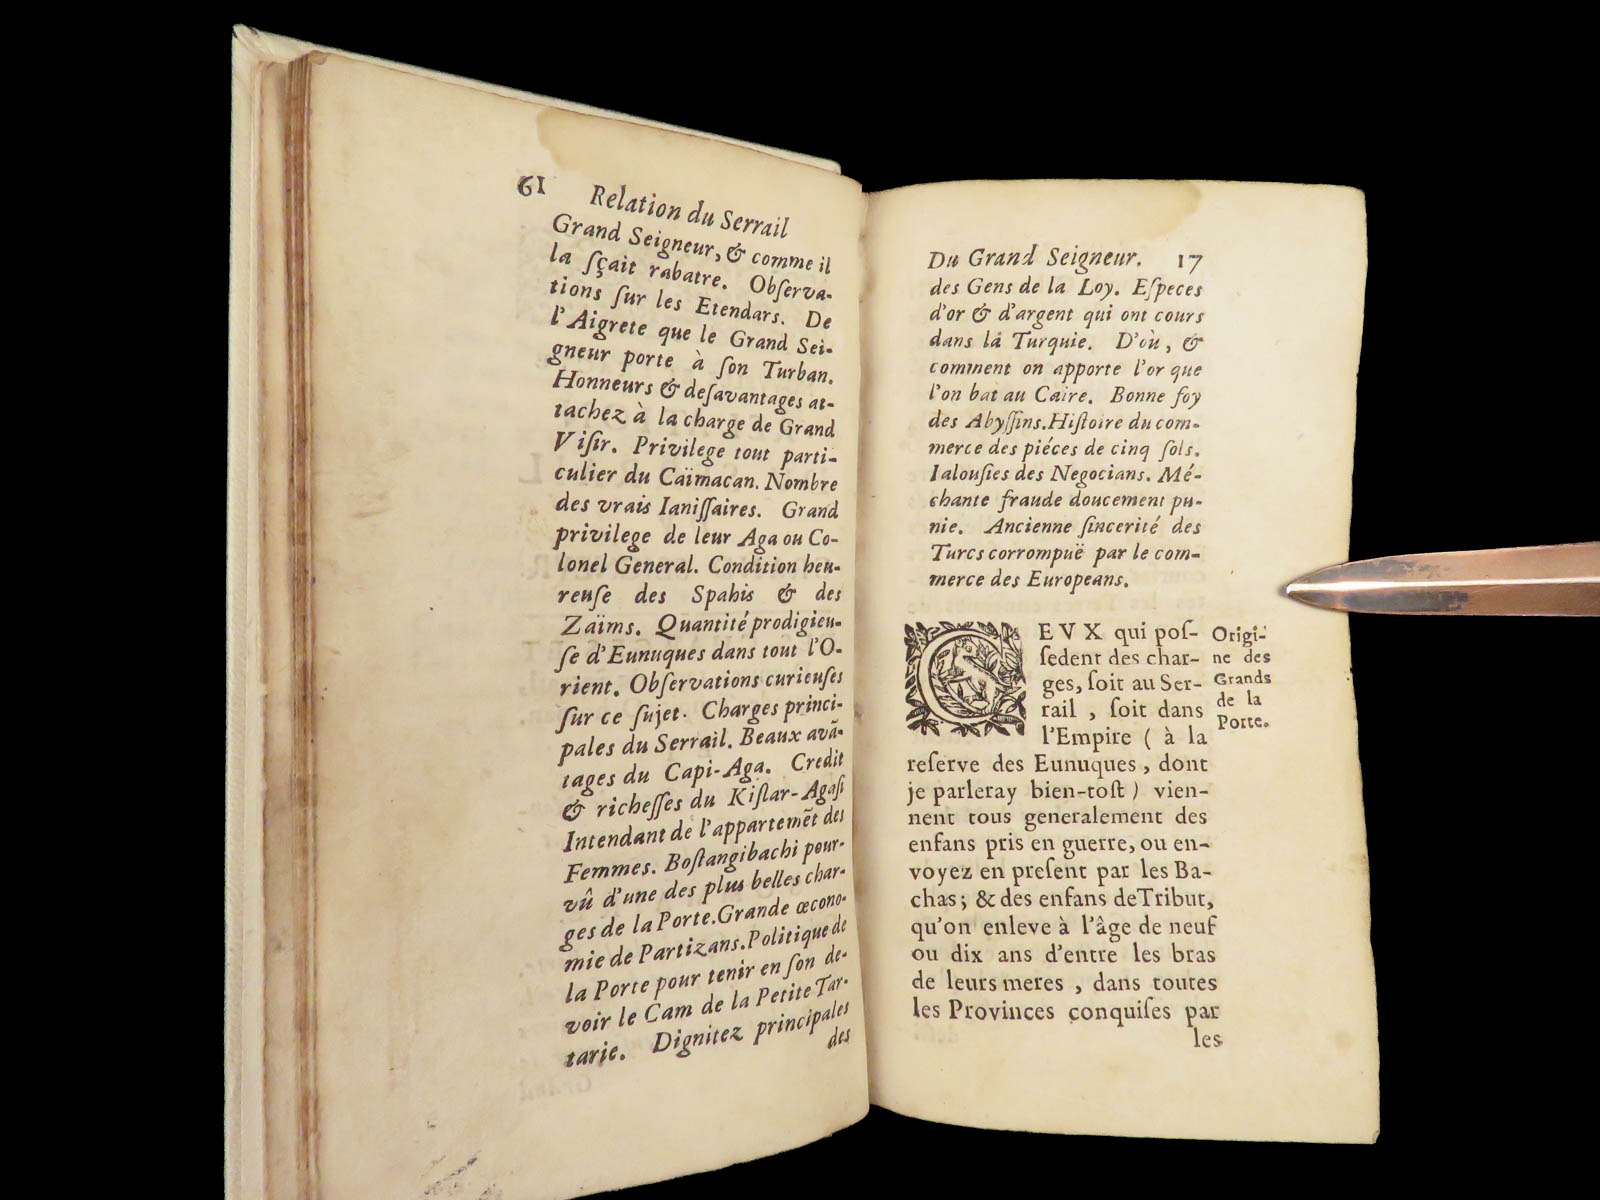 61 Relation du Serrail
Grand Seigneur, & comme il
la ſçait rabatre. Obſerva-
tions ſur les Etendars. De
l'Aigrete que le Grand Sei-
gneur porte à ſon Turban.
Honneurs & deſavantages at-
tachez à la charge de Grand
Viſir. Privilege tout parti-
culier du Caïmacan. Nombre
des vrais Ianiſſaires. Grand
privilege de leur Aga ou Co-
lonel General. Condition heu-
reuſe des Spahis & des
Zaïms. Quantité prodigieu-
ſe d'Eunuques dans tout l'O-
rient. Obſervations curieuſes
ſur ce ſujet. Charges princi-
pales du Serrail. Beaux avã-
tages du Capi-Aga. Credit
& richeſſes du Kiſlar-Agaſi
Intendant de l'appartemẽt des
Femmes. Boſtangibachi pour-
vû d'une des plus belles char-
ges de la Porte. Grande œcono-
mie de Partizans. Politique de
la Porte pour tenir en ſon de-
voir le Cam de la Petite Tar-
tarie. Dignitez principales
des
Du Grand Seigneur. 17
des Gens de la Loy. Eſpeces
d'or & d'argent qui ont cours
dans la Turquie. D'où, &
comment on apporte l'or que
l'on bat au Caire. Bonne foy
des Abyſſins. Hiſtoire du com-
merce des piéces de cinq ſols.
Ialouſies des Negocians. Mé-
chante fraude doucement pu-
nie. Ancienne ſincerité des
Turcs corrompuë par le com-
merce des Europeans.
CEVX qui poſ-
ſedent des char-
ges, ſoit au Ser-
rail, ſoit dans
l'Empire ( à la
reſerve des Eunuques, dont
je parleray bien-toſt ) vien-
nent tous generalement des
enfans pris en guerre, ou en-
voyez en preſent par les Ba-
chas; & des enfans de Tribut,
qu'on enleve à l'âge de neuf
ou dix ans d'entre les bras
de leurs meres, dans toutes
les Provinces conquiſes par
les
Origi-
ne des
Grands
de la
Porte.